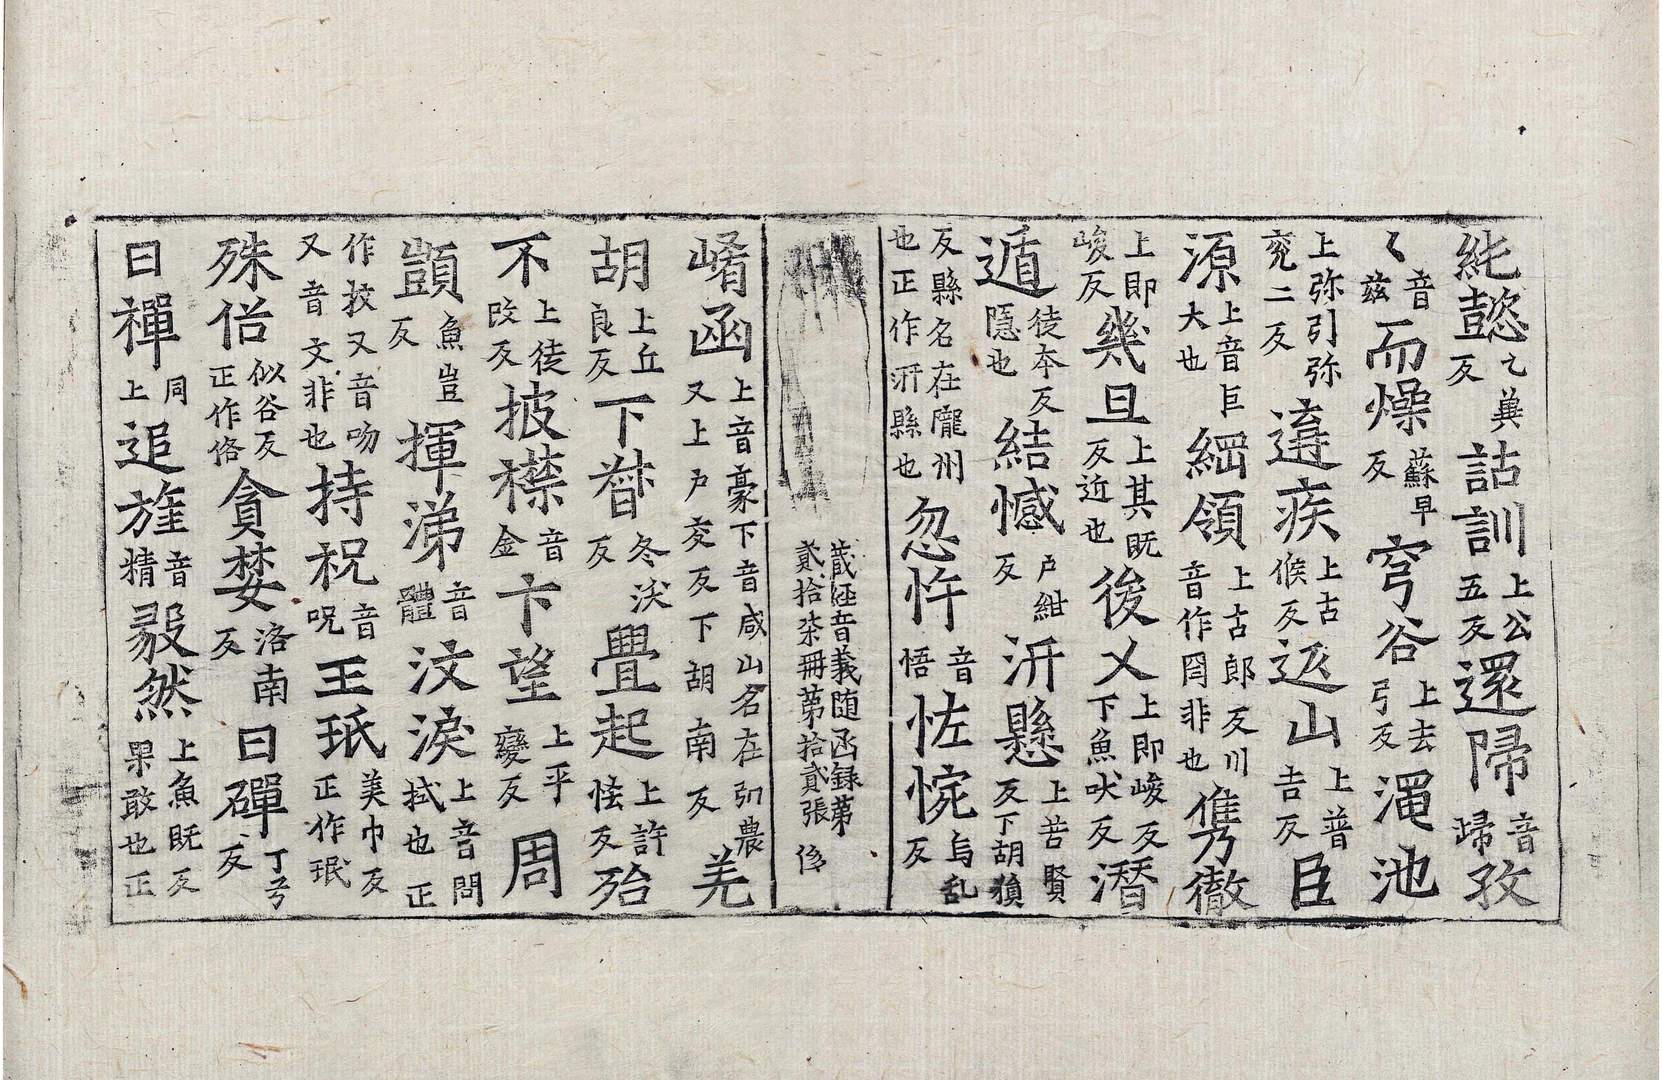 純懿乙兾反詁訓上公五反還歸音歸孜
〻音茲而燥蘇早反穹谷上去弓反澠池
上弥引弥兖二反遘疾上古候反返山上普吉反臣
源上音巨大也綱領上古郎反川音作罔非也儁徹
上即峻反幾旦上其既反近也後乂上即峻反下魚吠反潛
遁徒本反隱也結憾户紺反汧懸上苦賢反下胡涓
反縣名在隴州也正作汧縣也忽忤音悟怯惋烏乱反
藏經音義随函録第貳拾柒冊第拾貳張
崤函上音豪下音咸山名在弘農又上户交反下胡南反羌
胡上丘良反下督冬沃反疊起上許怯反殆
不上徒改反披襟音金卞望上乎變反周
顗魚豈反揮涕音體汶淚上音問拭也正
作抆又音吻又音文非也持祝音呪王珉美巾反正作珉
殊俗似谷反正作俗貪婪洛南反曰磾丁兮反
曰禪同上追旌音精毅然上魚既反果敢也正